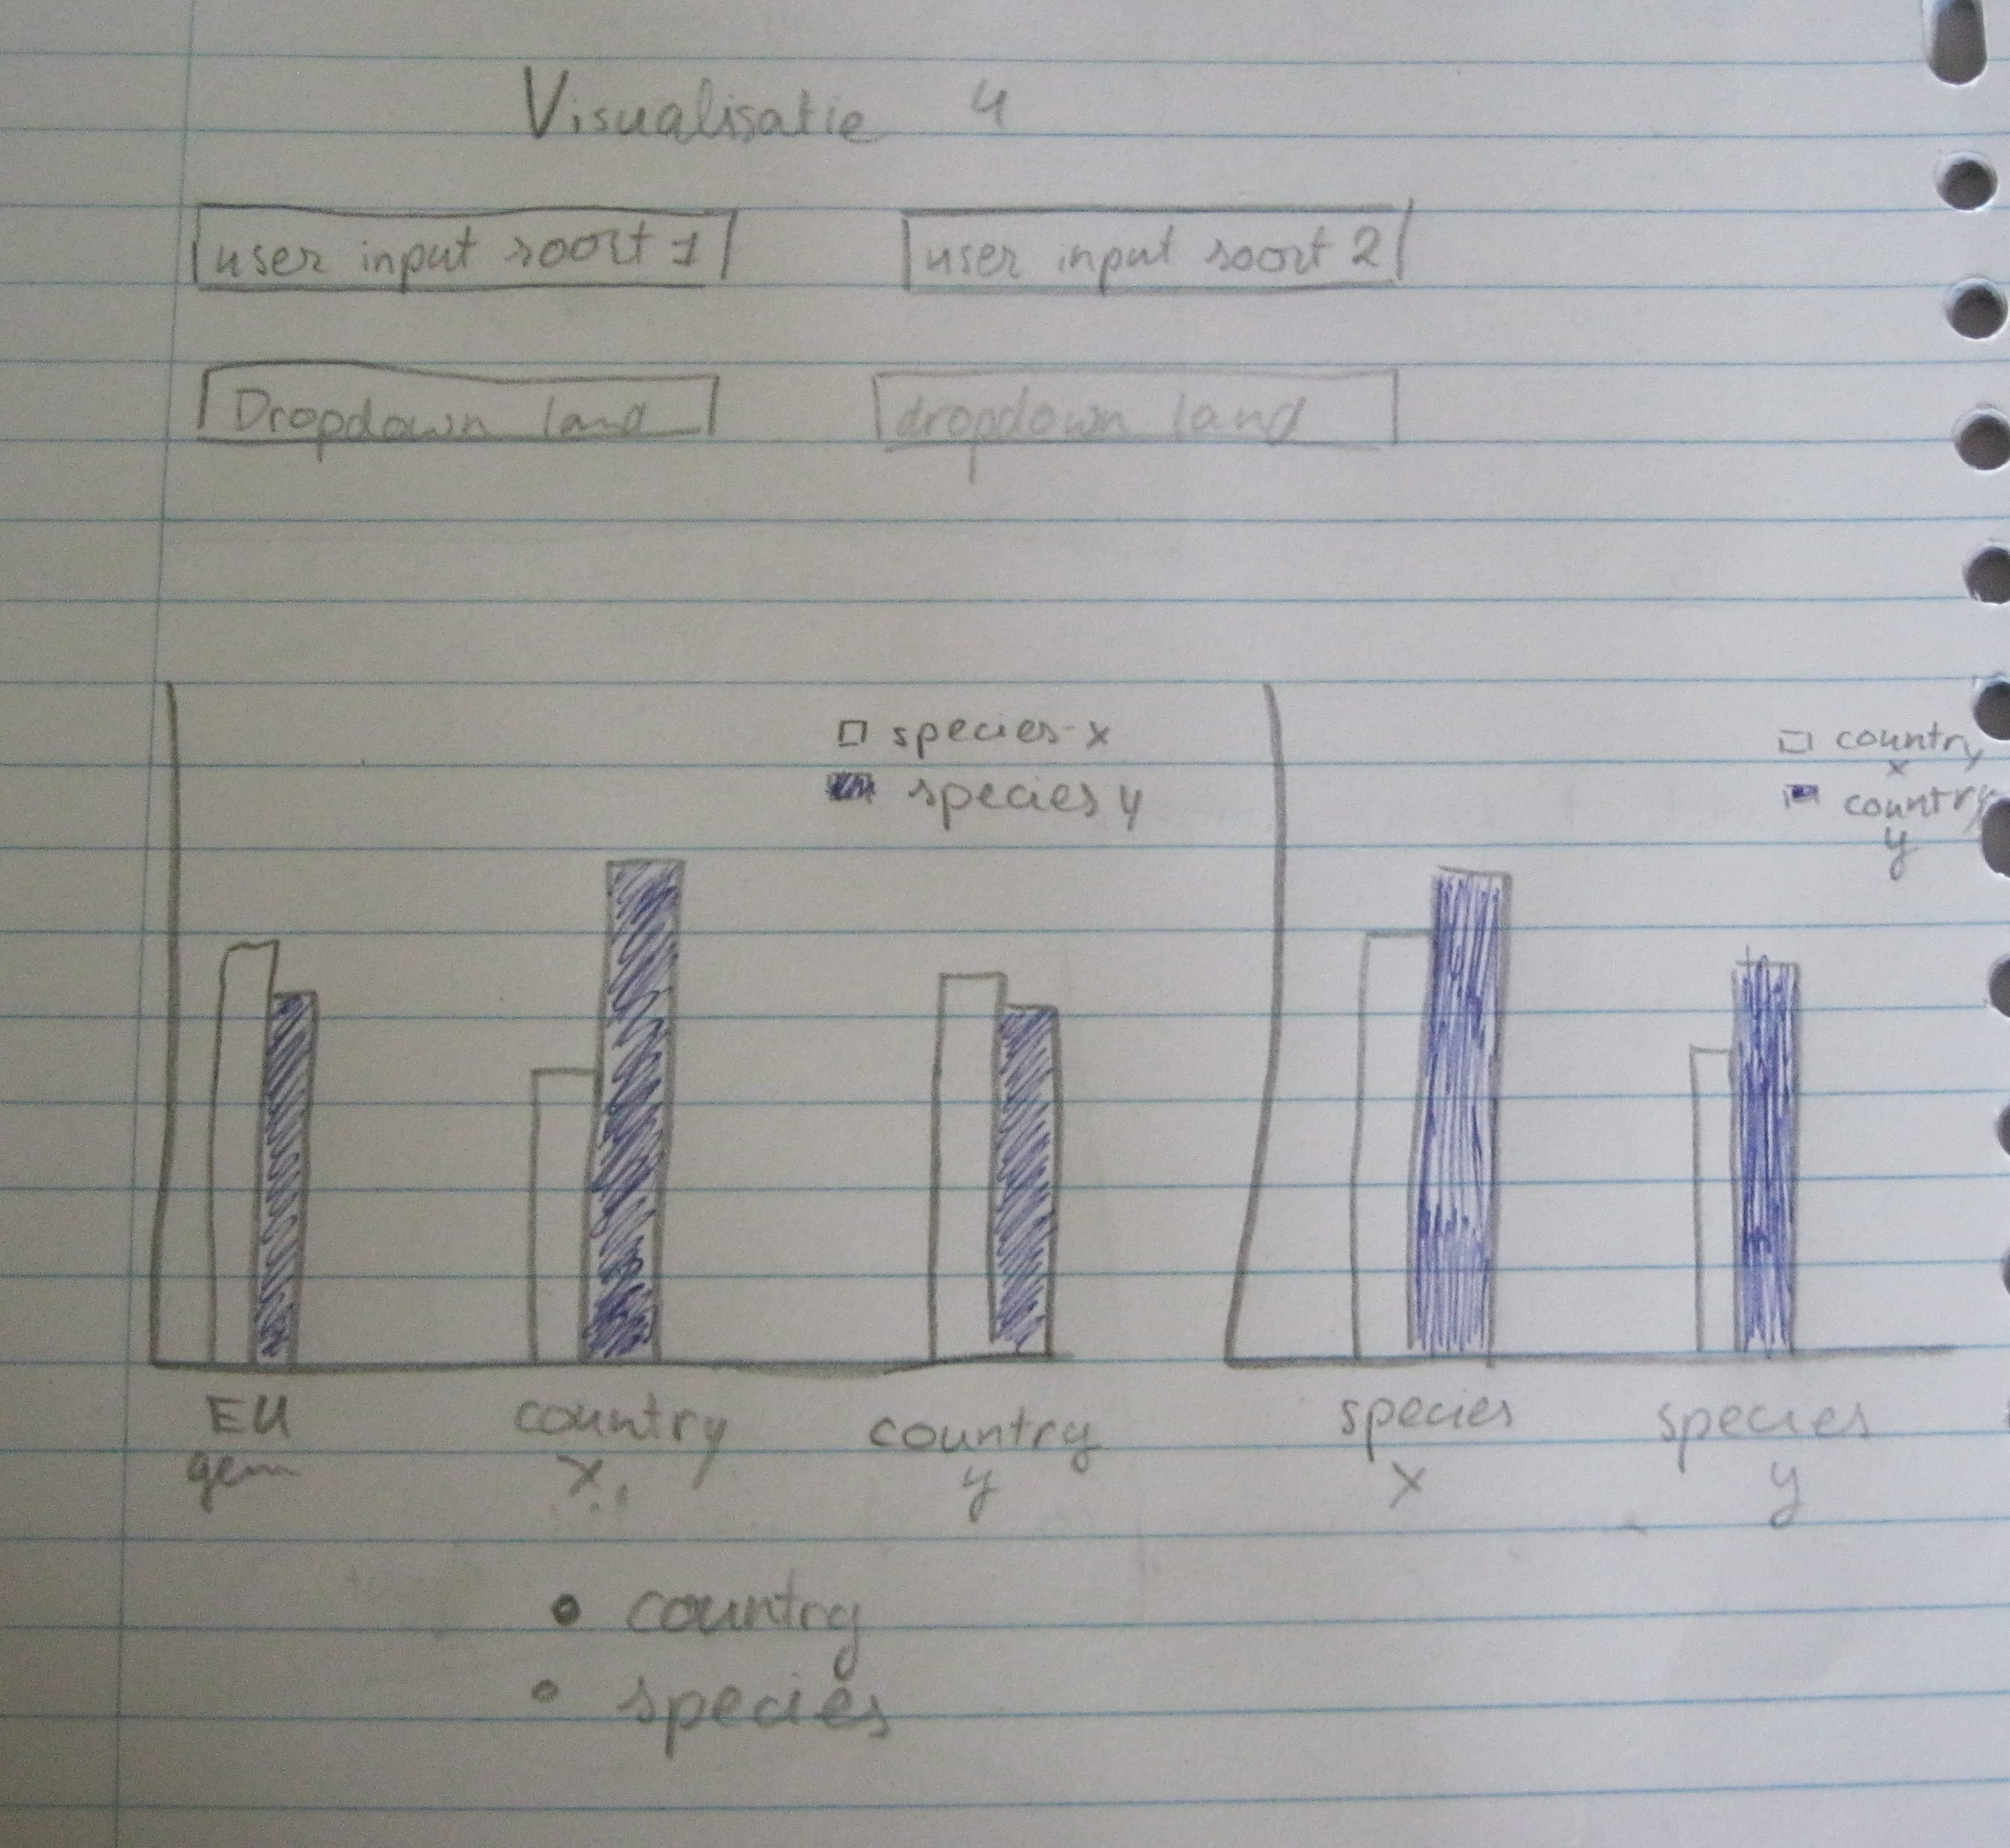 Visualisatie 4
user input soort 1
user input soort 2
Dropdown land
dropdown land
species x
species y
country
x
country
y
EU
gem
country
x
country
y
species
x
species
y
country
species